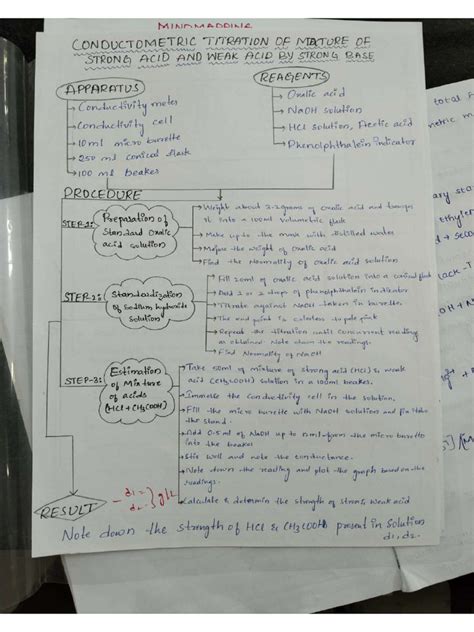 MINDMAPPING
CONDUCTOMETRIC TITRATION OF MIXTURE OF
STRONG ACID AND WEAK ACID BY STRONG BASE
APPARATUS
→ Conductivity meter
→ Conductivity cell
→ 10ml micro burette
→ 250 ml conical flask
→ 100 ml beaker
REAGENTS
→ Oxalic acid
→ NaOH solution
→ HCl solution, Acetic acid
→ Phenolphthalein indicator
PROCEDURE
STEP-1:
Preparation of
Standard Oxalic
acid solution
→ Weight about 2-2 grams of oxalic acid and transfer
it into a 100ml volumetric flask
→ Make up to the mark with distilled water
→ Measure the weight of oxalic acid
→ Find the Normality of oxalic acid solution
STEP-2:
Standardization
of Sodium hydroxide
solution
→ Fill 20ml of oxalic acid solution into a conical flask
→ Add 1 or 2 drops of phenolphthalein indicator
→ Titrate against NaOH taken in burette.
→ The end point is colorless to pale pink
→ Repeat the titration until concurrent reading
is obtained. Note down the readings.
→ Find Normality of NaOH
STEP-3:
Estimation
of Mixture
of acids
(HCl+CH3COOH)
→ Take 50ml of mixture of strong acid (HCl) & weak
acid (CH3COOH) solution in a 100ml beaker.
→ Immerse the conductivity cell in the solution.
→ Fill the micro burette with NaOH solution and fix to
the stand.
→ Add 0.5 ml of NaOH up to from the micro burette
into the beaker
→ Stir well and note the conductance.
→ Note down the reading and plot the graph based on the
readings.
→ Calculate & determine the strength of strong, weak acid
RESULT
d1=
d2=
} g/L
Note down the strength of HCl & CH3COOH present in solution
d1, d2.
total